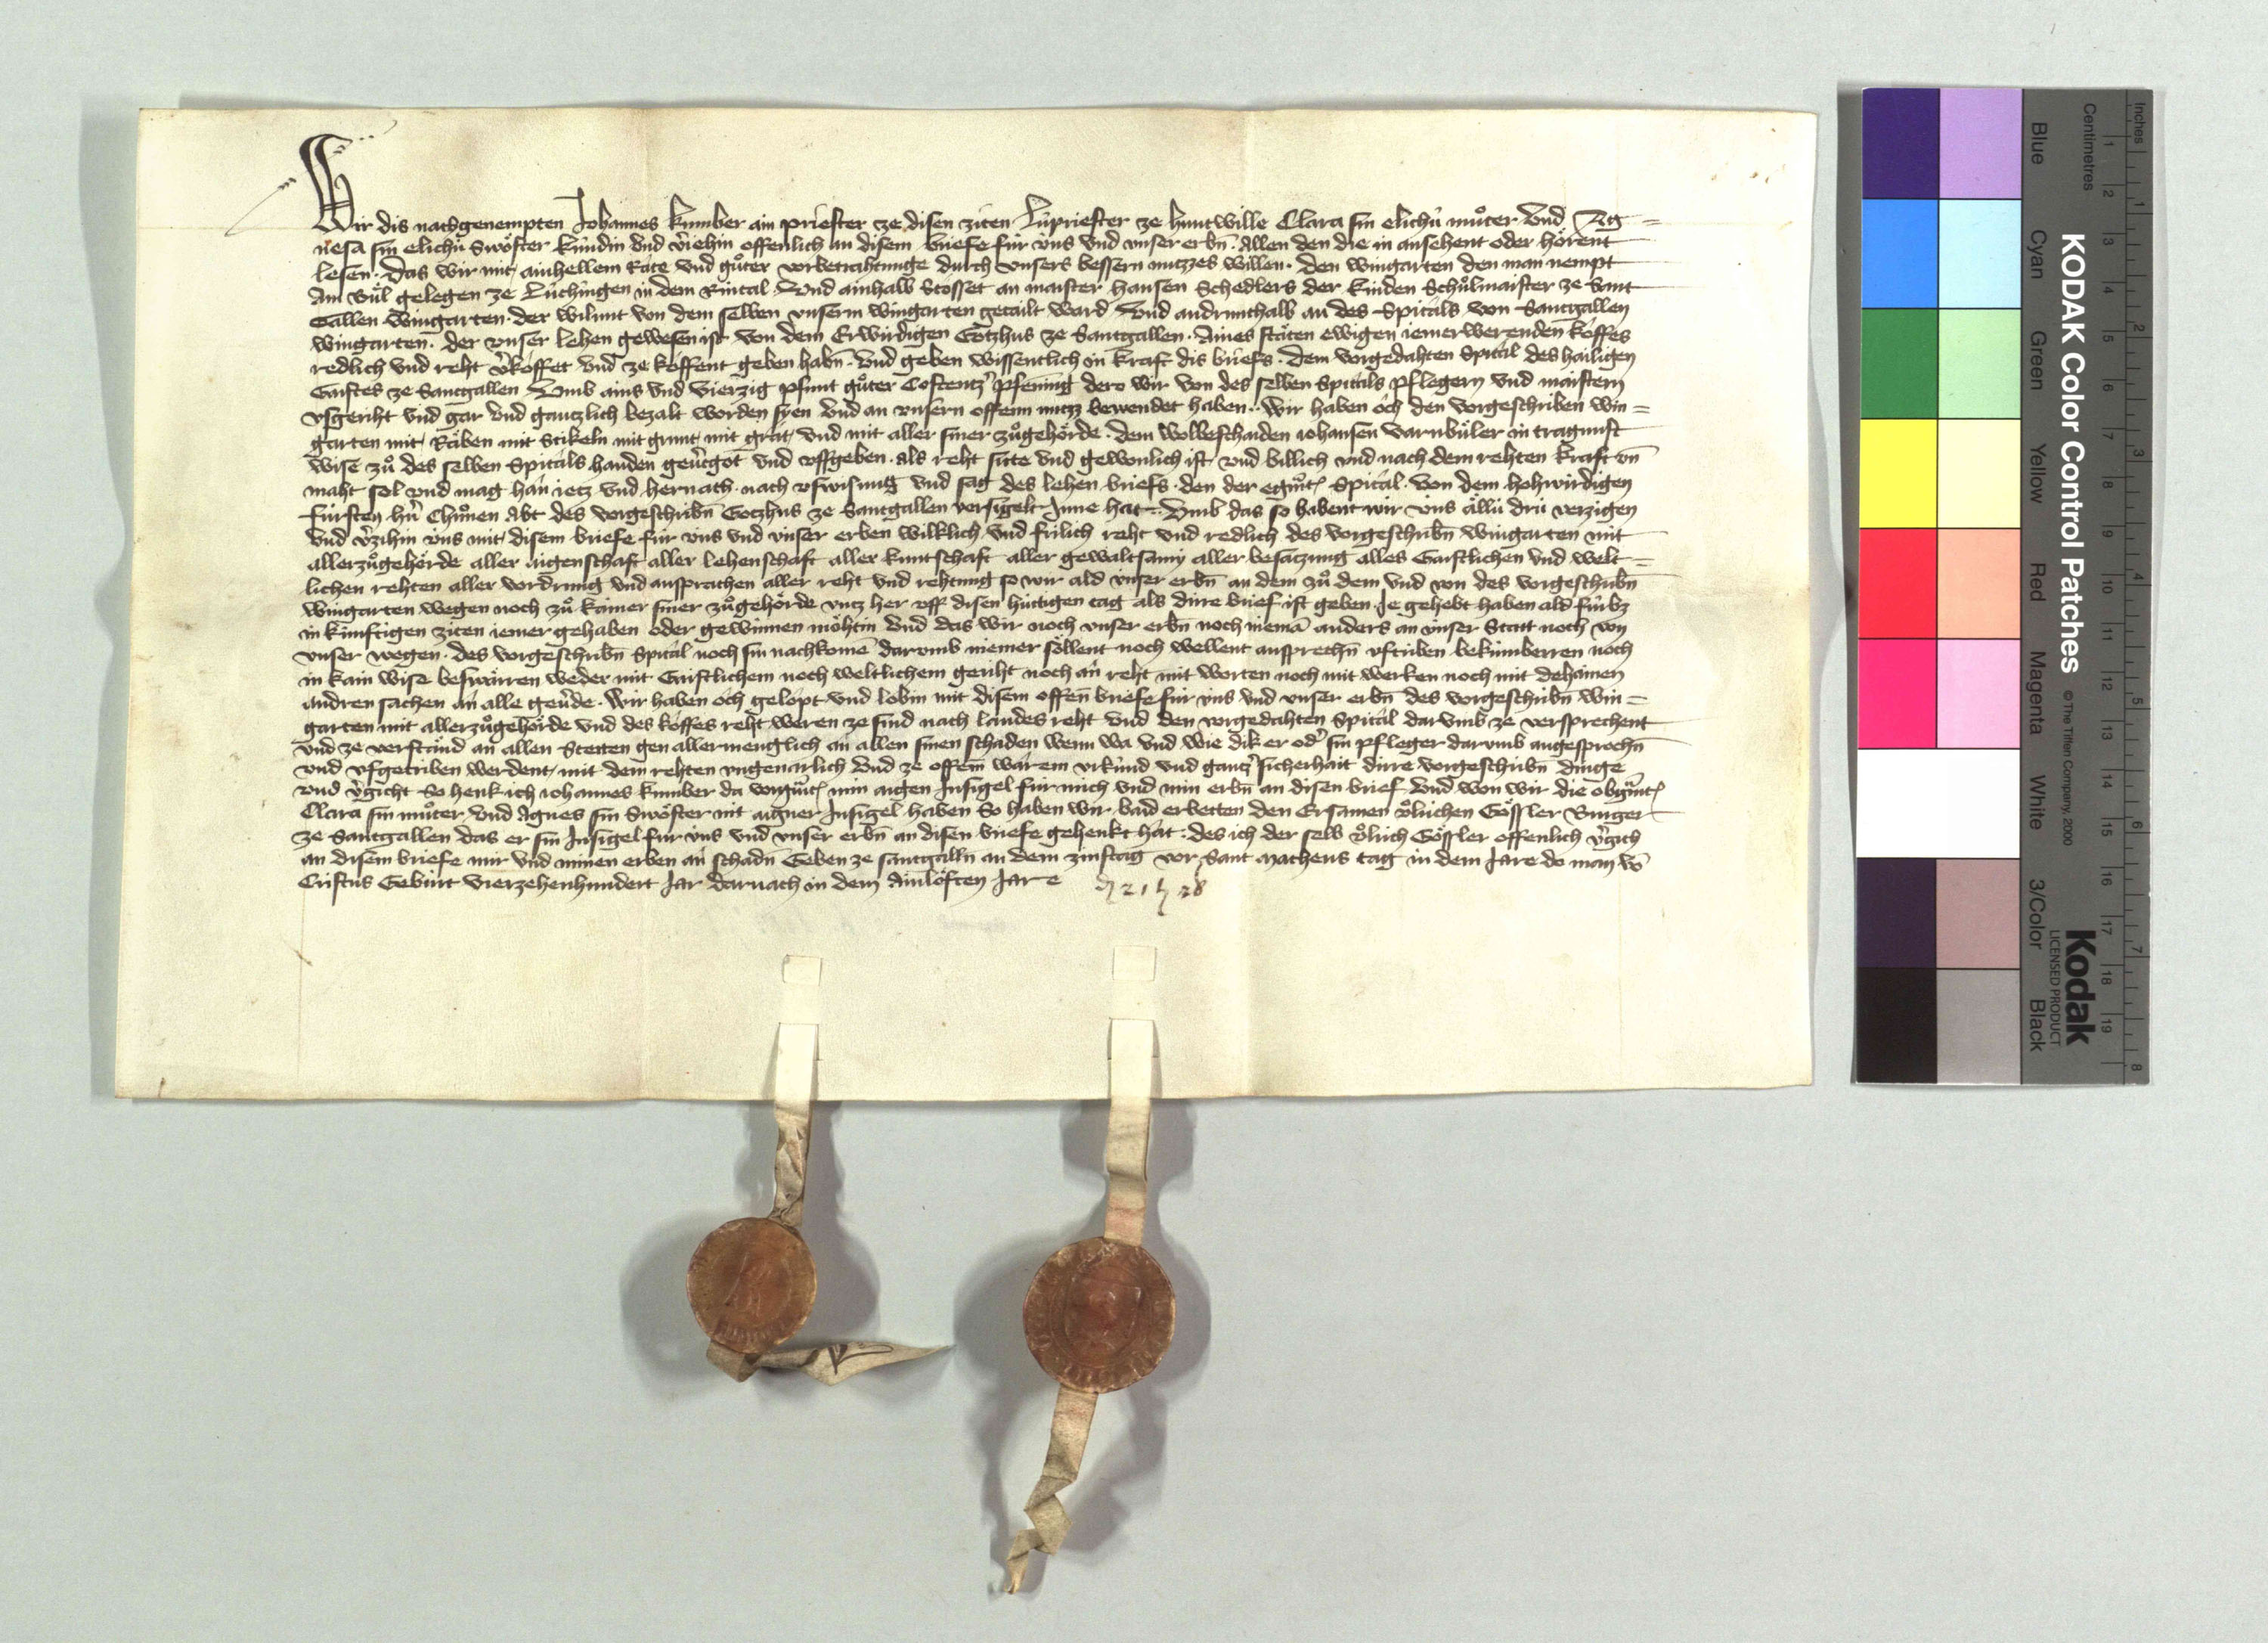 Wir dis nachgenempten Johannes kumber ain priester ze disen ziten Lúpriester ze huntwille Clara sin elichú můter vnd Ag=
nesa sin elichú Swöster kúndin vnd v̉iehin offenlich an disem briefe fúr úns vnd vnser erbn̄. Allen den die in ansehent oder hörent
lesen. Das wir mit ainhellem Râte vnd gůter vorbetrahtunge durch vnsers bessern nutzzes willen. den wingarten den man nempt
Am Búl gelegen ze Lúchingen in dem Rintal. Vnd ainhalb Stosset an maister Hansen Schedlers der kinden Schůlmaister ze Sant
Gallen Wingarten. der wilunt von dem selben vnserm wingarten getailt ward Vnd andrunthalb an des Spitâls von Santgallen
wingarten. der vnser lehen gewesen ist von dem Erwirdigen Gotzhus ze Santgallen. Aines stäten ewigen iemerwerenden kôffes
redlich vnd reht v̉kôffet vnd ze kôffent geben habn̄. vnd geben wissentlich in kraft dis briefs. dem vorgedahten Spitâl des hailigen
Gaistes ze Santgallen Vmb ains vnd vierzig pfunt gůter Costentz̉ pfening dero wir von des selben Spitâls pflegern vnd maistern
vsgeriht vnd gar vnd gantzlich bezalt worden syen vnd an vnsern offenn nutzz bewendet haben. Wir haben ôch den vorgeschriben win=
garten mit Räben mit Stikeln mit grunt mit grât vnd mit aller siner zůgehörde. dem wolbeschaiden iohansen varnbüler in tragunst
wise zů des selben Spitâls handen geu̍tgot vnd vffgeben. als reht sitte vnd gewonlich ist vnd billich vnd nach dem rehten kraft vn̄
maht sol vnd mag hân ietz vnd hernach. nach vswisung vnd sag des lehen briefs. den der egn̄t Spitâl. von dem hohwirdigen
fúrsten hn̄ Chůnen Abt des vorgeschribn̄ Gotzhus ze Santgallen versigelt Inne hat. Vmb das so habent wir úns ällú drú verzigen
vnd v̉zihin úns mit disem briefe fúr úns vnd únser erben wilklich vnd frilich reht vnd redlich des vorgeschribn̄ wingarten mit
allerzůgehörde aller aigenschaft aller lehenschaft aller kuntschaft aller gewaltsami aller besatzung alles Gaistlichen vnd welt=
lichen rehten aller vordrung vnd ansprachen aller reht vnd rehtung so wir ald únser erbn̄ an dem zů dem vnd von des vorgeschribn̄
wingarten wegen noch zů kainer siner zůgehörde vntz her vff disen húttigen tag als dirre brief ist geben. Je gehebt haben ald fúrbz
in kúnftigen ziten iemer gehaben oder gewinnen möhtin vnd das wir noch vnser erbn̄ noch niemā anders an únser Statt noch von
vnser wegen. des vorgeschribn̄ Spitâl noch sin nachkomē darumb niemer söllent noch wellent ansprechn̄ vftriben bekúmberren noch
in kain wise beswärren weder mit Gaistlichem noch weltlichem geriht noch ân reht mit worten noch mit werken noch mit dehainen
andren sachen ân alle geu̍de. Wir haben ôch gelôpt vnd lobin mit disem offen̄ briefe fúr úns vnd vnser erbn̄ des vorgeschribn̄ win=
garten mit allerzůgehörde vnd des kôffes reht weren ze sind nach landes reht vnd den vorgedahten Spitâl darvmb ze versprechent
vnd ze verstând an allen Stetten gen allermenglich ân allen sinen schaden wenn wa vnd wie dik er od̉ sin pfleger darumb angesprochn̄
vnd vfgetriben werdent mit dem rehten vngeuarlich Vnd ze offem̄ wârem vrkúnd vnd gantz̉ sicherhait dirre vorgeschribn̄ dinge
vnd v̉giht So henk ich iohannes kumber da vorgn̄t min aigen Insigel fúr mich vnd min erbn̄ an disen brief. Vnd won wir die obgn̄t
Clara sin můter vnd Agnes sin Swöster nit aigner Insigel haben So haben wir baid erbetten den Ersamen v̊lrichen Gössler Burger
ze Santgallen das er sin Insigel fúr úns vnd vnser erbn̄ an disen briefe gehenkt hât. des ich der selb v̊lrich Gössler offenlich v̉gich
an disem briefe mir vnd minen erben ân schadn̄ Geben ze santgalln̄ an dem zinstag vor Sant Matheus tag in dem Jare do man vō
Cristus Gebúrt vierzehenhundert Jar darnach in dem Ainlöften Jare
KODAK Color Control Patches
© The Tiffen Company, 2000
Kodak
LICENSED PRODUCT
Blue
Cyan
Green
Yellow
Red
Magenta
White
3/Color
Black
Inches
Centimetres
1 2 3 4 5 6 7 8 9 10 11 12 13 14 15 16 17 18 19
1 2 3 4 5 6 7 8